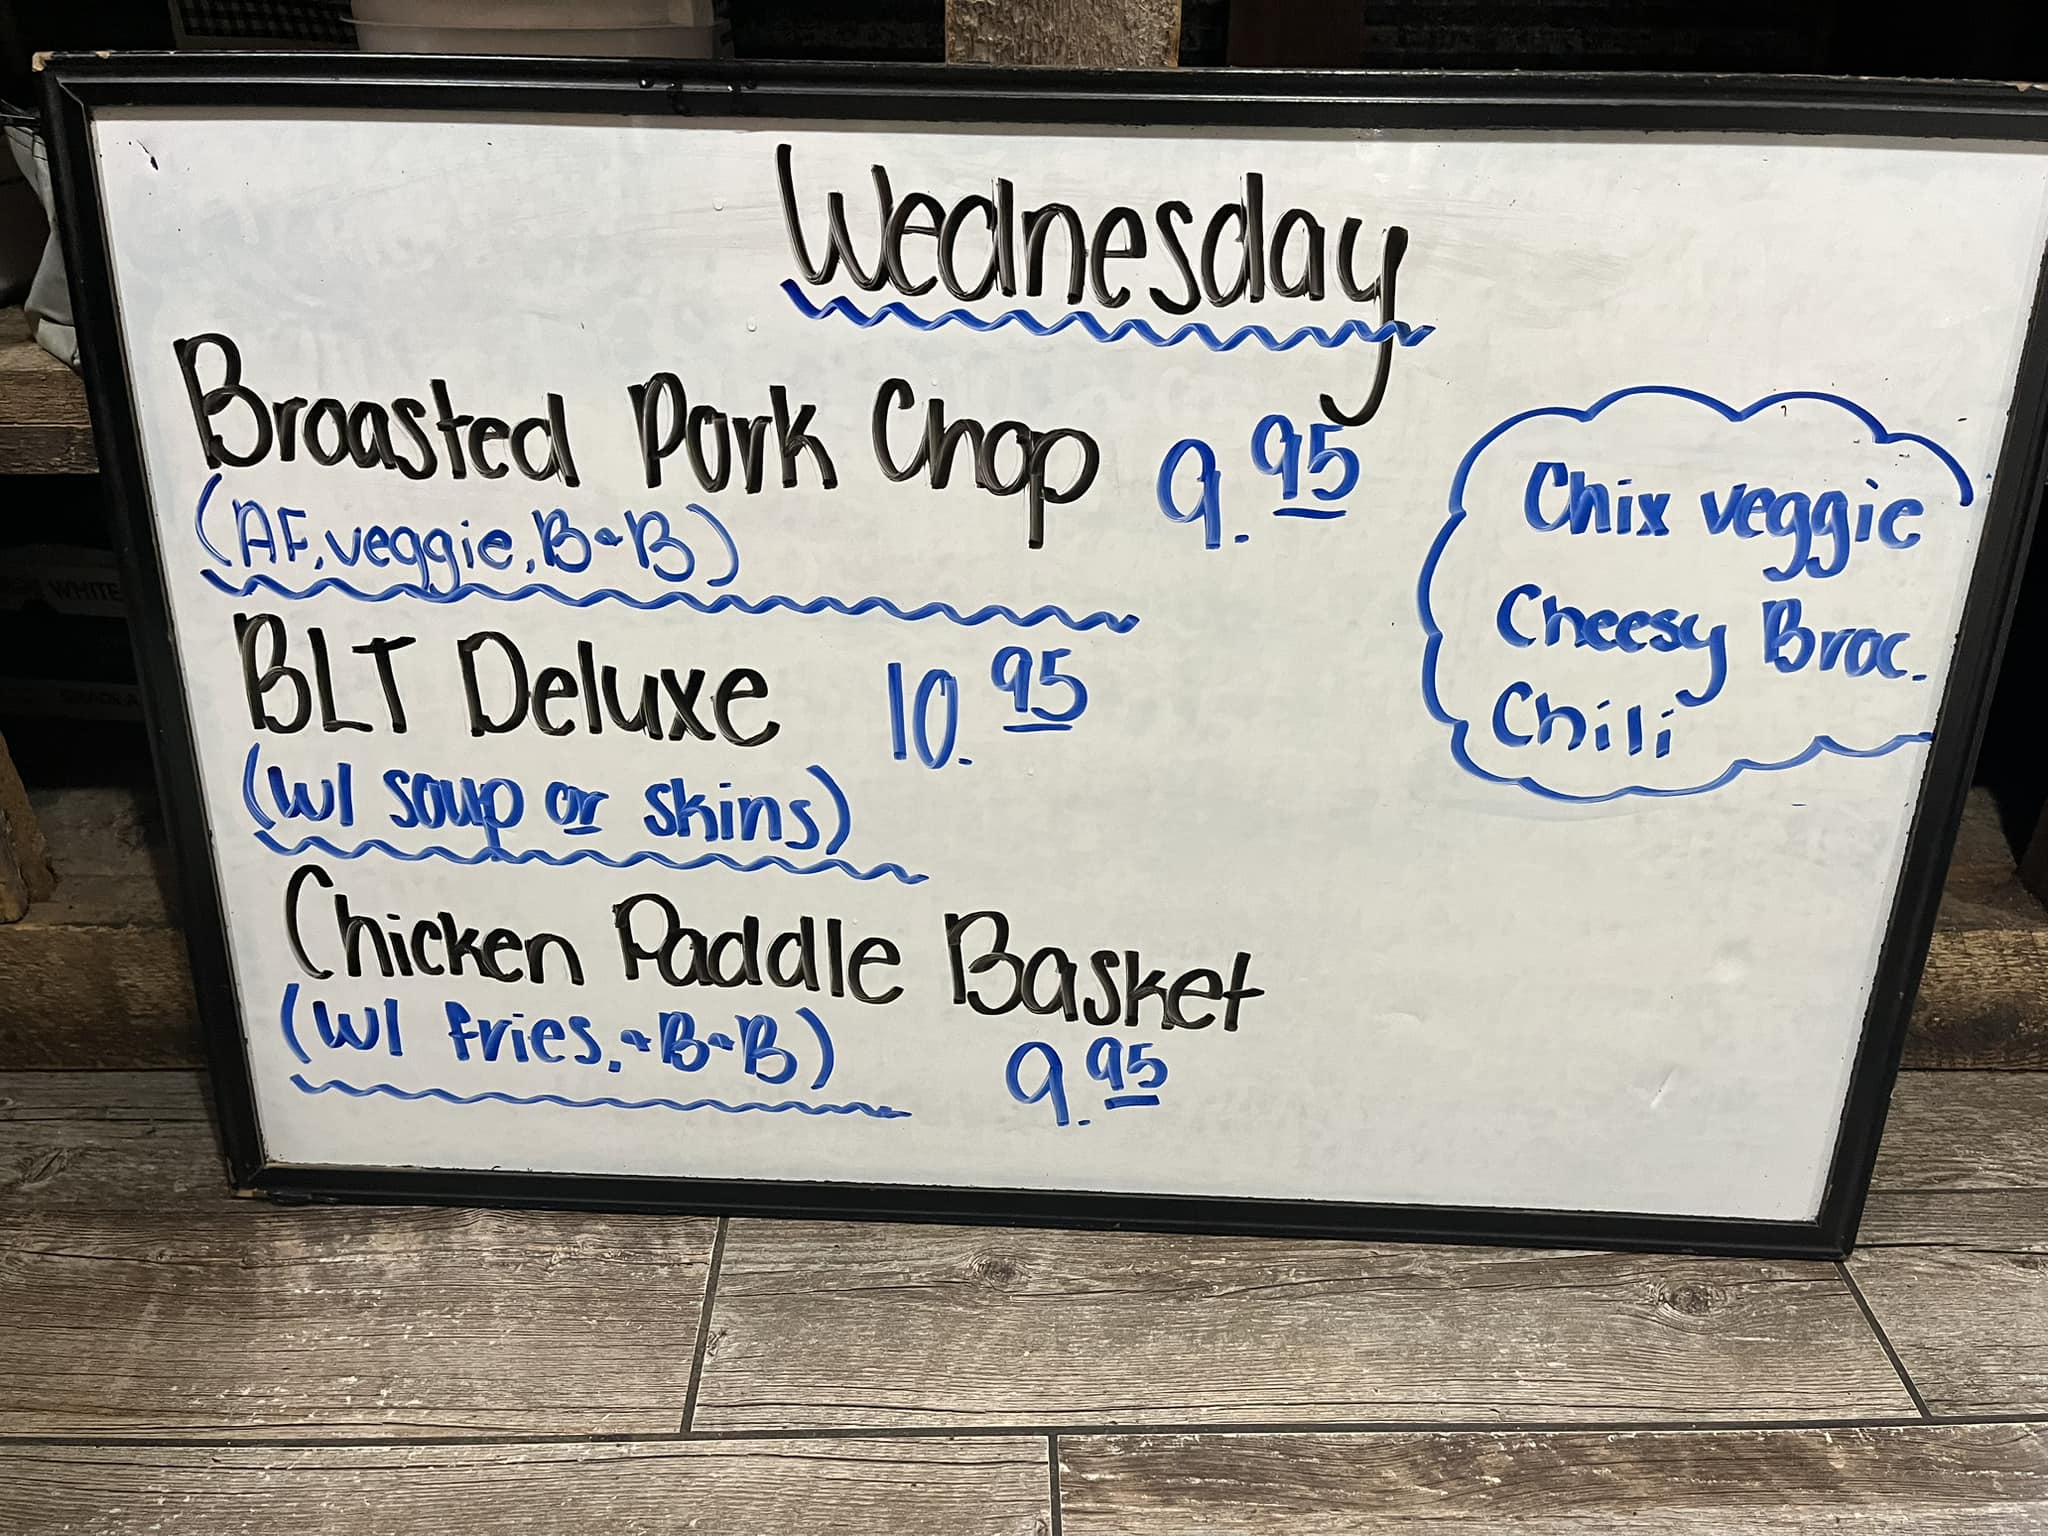 Wednesday
Broasted Pork Chop 9.95
(AF, veggie, B+B)
BLT Deluxe 10.95
(w/ soup or skins)
Chicken Paddle Basket
(w/ fries, + B+B) 9.95
Chix veggie
Cheesy Broc.
Chili
WHITE